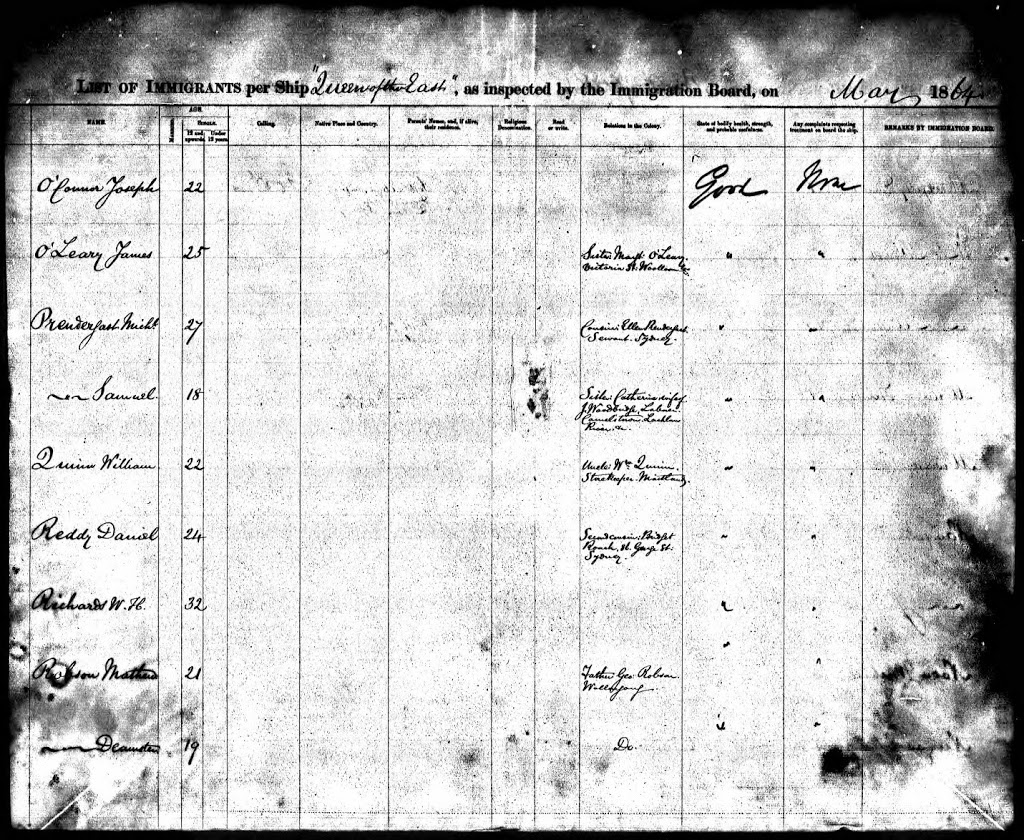 LIST OF IMMIGRANTS per Ship "Queen of the East", as inspected by the Immigration Board, on May 1864
NAME. AGE. Calling. Native Place and Country. Parents' Names, and, if alive, their residence. Religious Denomination. Read or write. Relations in the Colony. State of bodily health, strength, and probable usefulness. Any complaints respecting treatment on board the ship. REMARKS BY IMMIGRATION BOARD.
12 and upwards. Under 12 years.
O'Connor Joseph 22 Good None
O'Leary James 25 Sister Margt: O'Leary. " "
Victoria St. Woolloom
Prenderfast Michl. 27 Cousin: Ellen Prenderfast " "
Servant. Sydney.
Samuel. 18 Sister: Catherine wife of " "
J. Woodbridge, Labourer
Lachlan
River.
Quinn William 22 Uncle: Wm. Quinn. " "
Storekeeper. Maitland.
Reddy Daniel 24 Second cousin: Bridget " "
Roach, St. George St.
Sydney.
Richards W. H. 32 " "
Robson Mathew 21 Father Geo: Robson " "
Wollongong
19 Do. " "